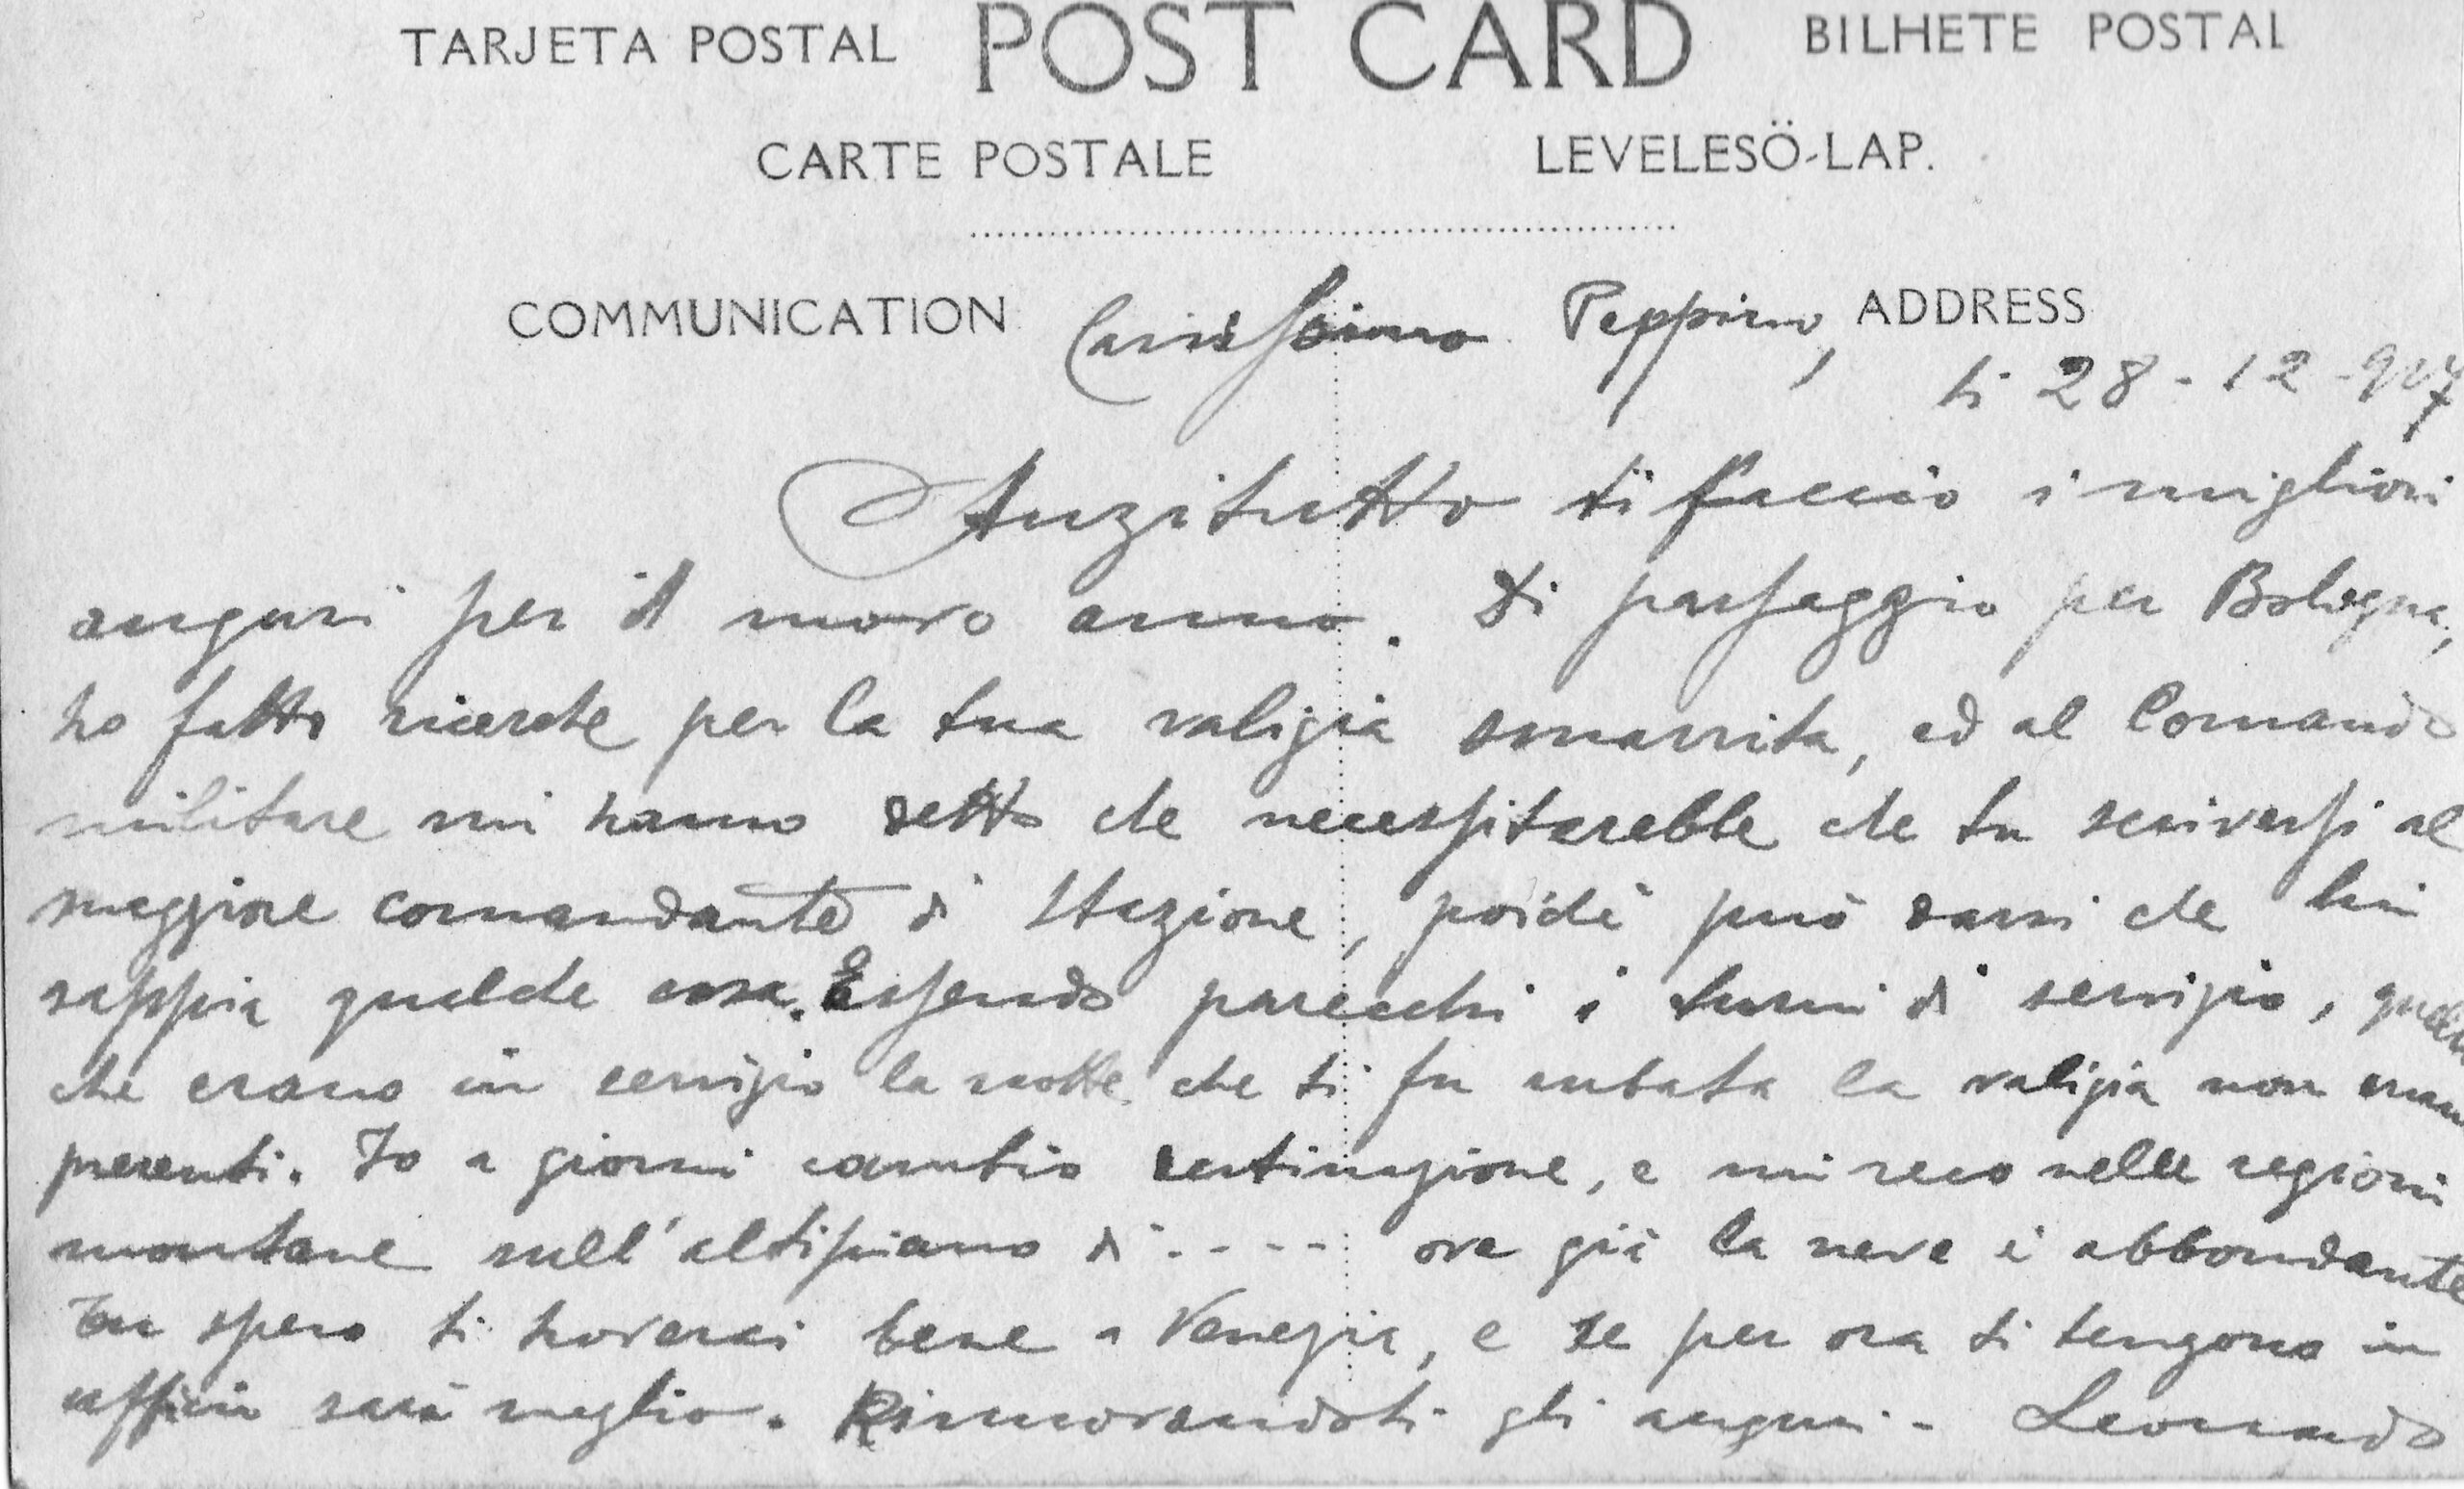 TARJETA POSTAL POST CARD BILHETE POSTAL
CARTE POSTALE LEVELESÖ-LAP.
COMMUNICATION Carissimo Peppino, ADDRESS
li 28-12-917
Anzitutto ti faccio i migliori
auguri per il nuovo anno. Di passaggio per Bologna,
ho fatto ricerche per la tua valigia smarrita, ed al Comando
militare mi hanno detto che necessitarebbe che tu scrivessi al
maggiore comandante di Stazione, poichè può darsi che lui
sappia qualche cosa. Essendo parecchi i turni di servizio, quelli
che erano in servizio la notte che ti fu rubata la valigia non erano
presenti. Io a giorni cambio destinazione, e mi reco nelle regioni
montane sull'altipiano di .---- ove già la neve è abbondante
Tu spero ti troverai bene a Venezia, e se per ora ti tengono in
ufficio sarà meglio. Rinnovandoti gli auguri - Leonardo